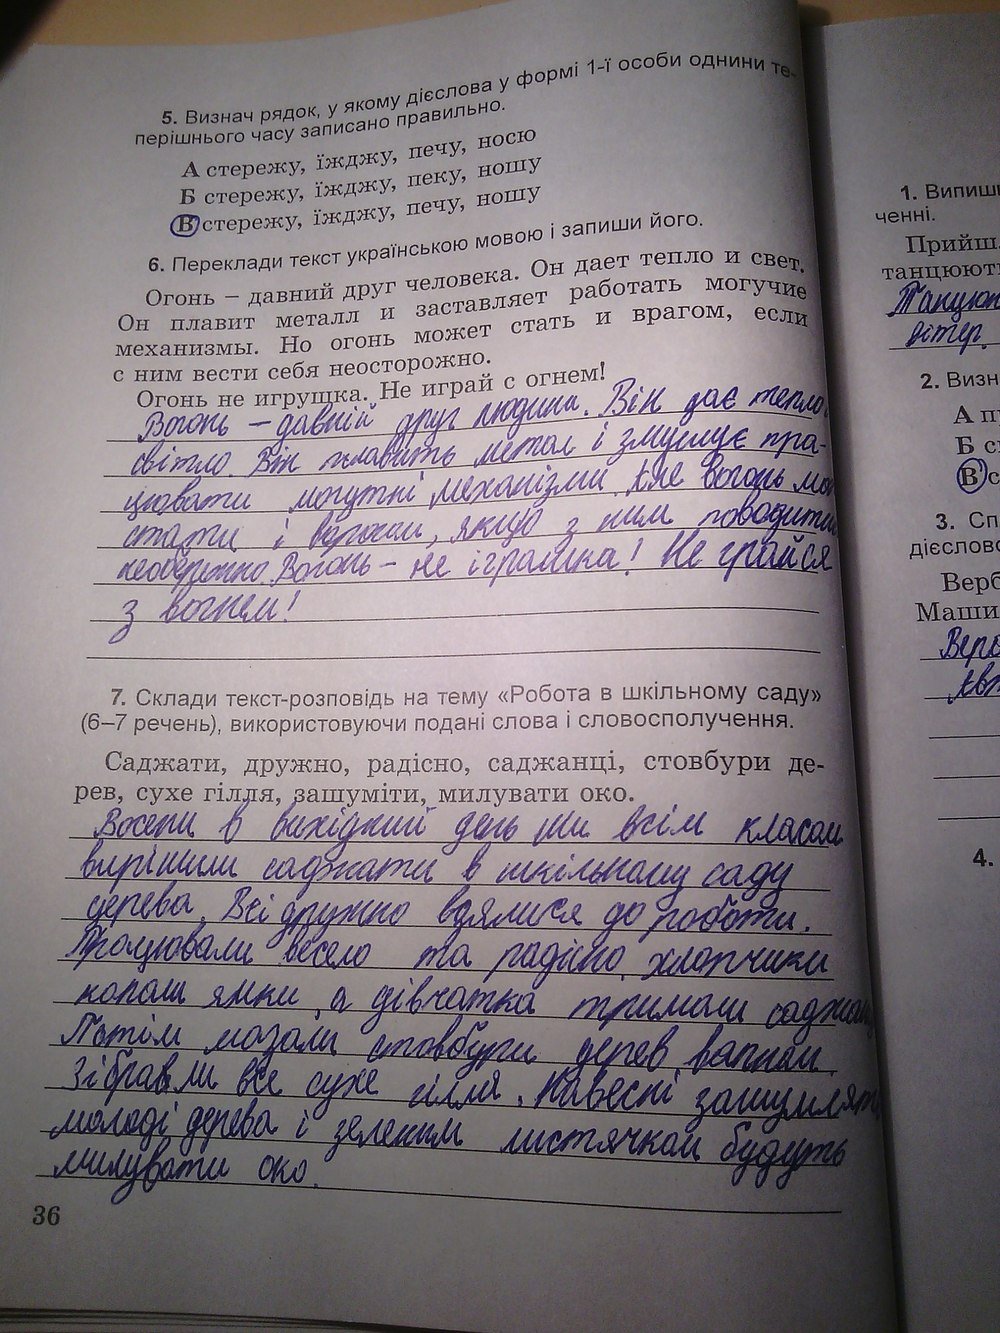 5. Визнач рядок, у якому дієслова у формі 1-ї особи однини те-
перішнього часу записано правильно.
А стережу, їжджу, печу, носю
Б стережу, їжджу, пеку, ношу
В стережу, їжджу, печу, ношу
6. Переклади текст українською мовою і запиши його.
Огонь – давний друг человека. Он дает тепло и свет.
Он плавит металл и заставляет работать могучие
механизмы. Но огонь может стать и врагом, если
с ним вести себя неосторожно.
Огонь не игрушка. Не играй с огнем!
Вогонь – давній друг людини. Він дає тепло і
світло. Він плавить метал і змушує пра-
цювати могутні механізми. Але вогонь
стати і ворогом, якщо з ним поводитись
необережно. Вогонь – не іграшка! Не грайся
з вогнем!
7. Склади текст-розповідь на тему «Робота в шкільному саду»
(6–7 речень), використовуючи подані слова і словосполучення.
Саджати, дружно, радісно, саджанці, стовбури де-
рев, сухе гілля, зашуміти, милувати око.
Восени в вихідний день ми всім класом
вирішили саджати в шкільному саду
дерева. Всі дружно взялися до роботи.
Працювали весело та радісно. Хлопчики
копали ямки, а дівчатка тримали
Потім мазали стовбури дерев вапном.
Зібрали все сухе гілля. Навесні зашумлять
молоді дерева і зеленим листячком будуть
милувати око.
36
1. Випиши
ченні.
Прийш
танцюють
Танцюют
вітер.
2. Визн
А п
Б с
В с
3. Сп
дієслово
Верб
Маши
Верб
4.